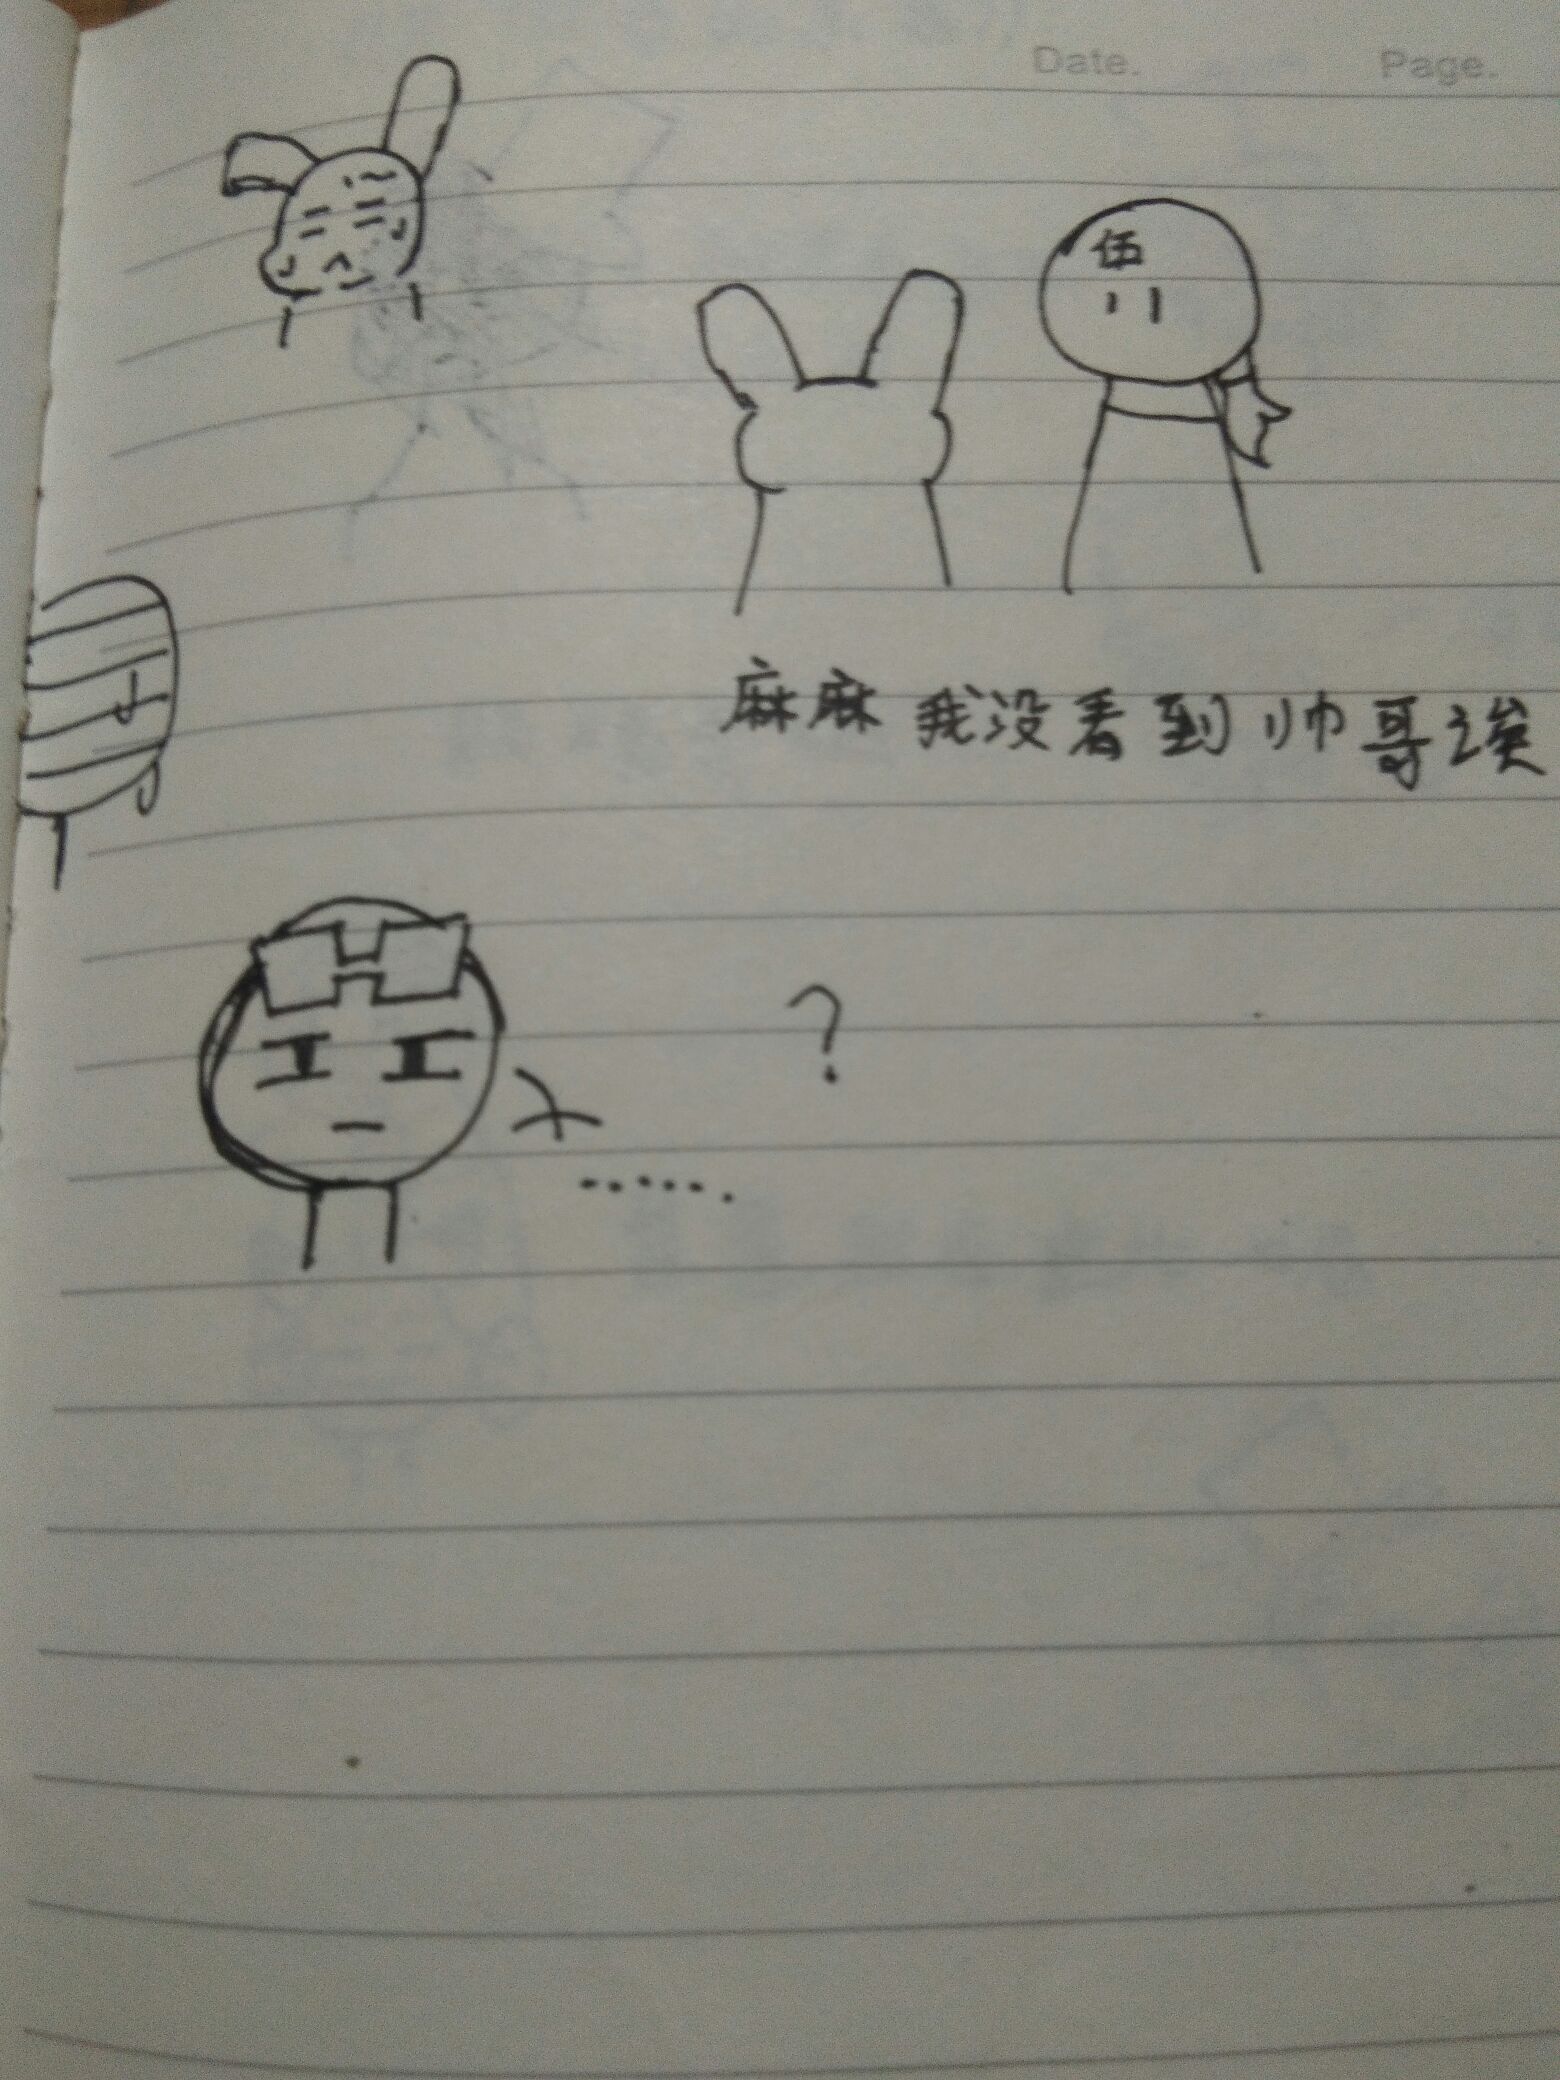 Date. Page.
伍
麻麻 我没看到帅哥诶
?
......